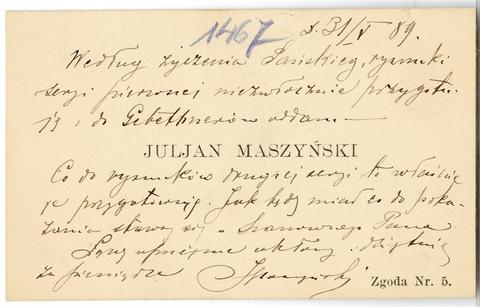 1467 d. 31/V 89.
Według życzenia Pańskiego, rysunki
serji pierwszej niezwłocznie przygotu-
ję i do Gebethnerów oddam. —
JULJAN MASZYŃSKI
Co do rysunków drugiej serji to właśnie
je przygotowuję. Jak będę miał co do poka-
zania stawię się u Szanownego Pana
Łączę uprzejme ukłony i dziękuję
za pieniądze
Zgoda Nr. 5.